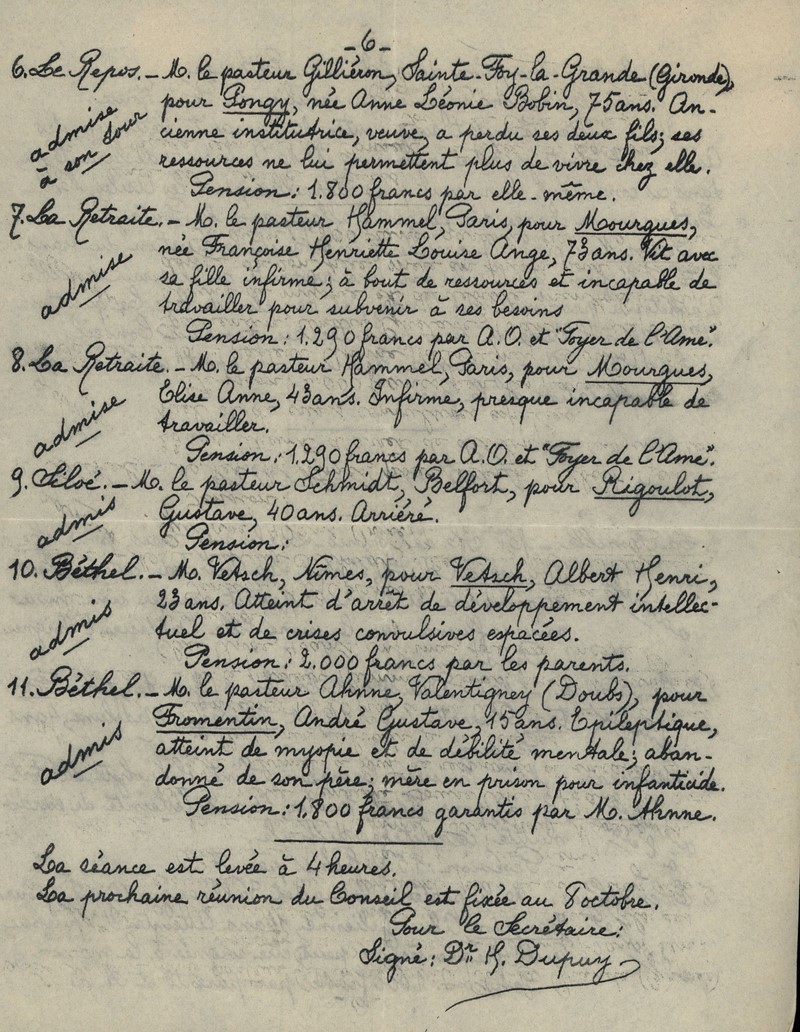 -6-
6. Le Repos. - M. le pasteur Gilliéron, Sainte-Foy-la-Grande (Gironde),
pour Pongy, née Anne Léonie Bobin, 75 ans. An-
admise à son tour
cienne institutrice, veuve, a perdu ses deux fils; ses
ressources ne lui permettent plus de vivre chez elle.
Pension: 1.800 francs par elle-même.
7. La Retraite. - M. le pasteur Hammel, Paris, pour Mourgues,
née Françoise Henriette Louise Ange, 73 ans. Vit avec
admise
sa fille infirme; à bout de ressources et incapable de
travailler pour subvenir à ses besoins
Pension: 1.290 francs par A.O. et "Foyer de l'Ame".
8. La Retraite. - M. le pasteur Hammel, Paris, pour Mourgues,
Elise Anne, 43 ans. Infirme, presque incapable de
admise
travailler.
Pension: 1.290 francs par A.O. et "Foyer de l'Ame".
9. Siloé. - M. le pasteur Schmidt, Belfort, pour Rigoulot,
admis
Gustave, 40 ans. Arriéré.
Pension:
10. Béthel. - M. Vetsch, Nîmes, pour Vetsch, Albert Henri,
23 ans. Atteint d'arrêt de développement intellec-
admis
tuel et de crises convulsives espacées.
Pension: 2.000 francs par les parents.
11. Béthel. - M. le pasteur Ahnne, Valentigney (Doubs), pour
Fromentin, André Gustave, 15 ans. Epileptique,
admis
atteint de myopie et de débilité mentale; aban-
donné de son père; mère en prison pour infanticide.
Pension: 1.800 francs garantis par M. Ahnne.
La séance est levée à 4 heures.
La prochaine réunion du Conseil est fixée au 8 octobre.
Pour le Secrétaire:
Signé: Dr H. Dupuy